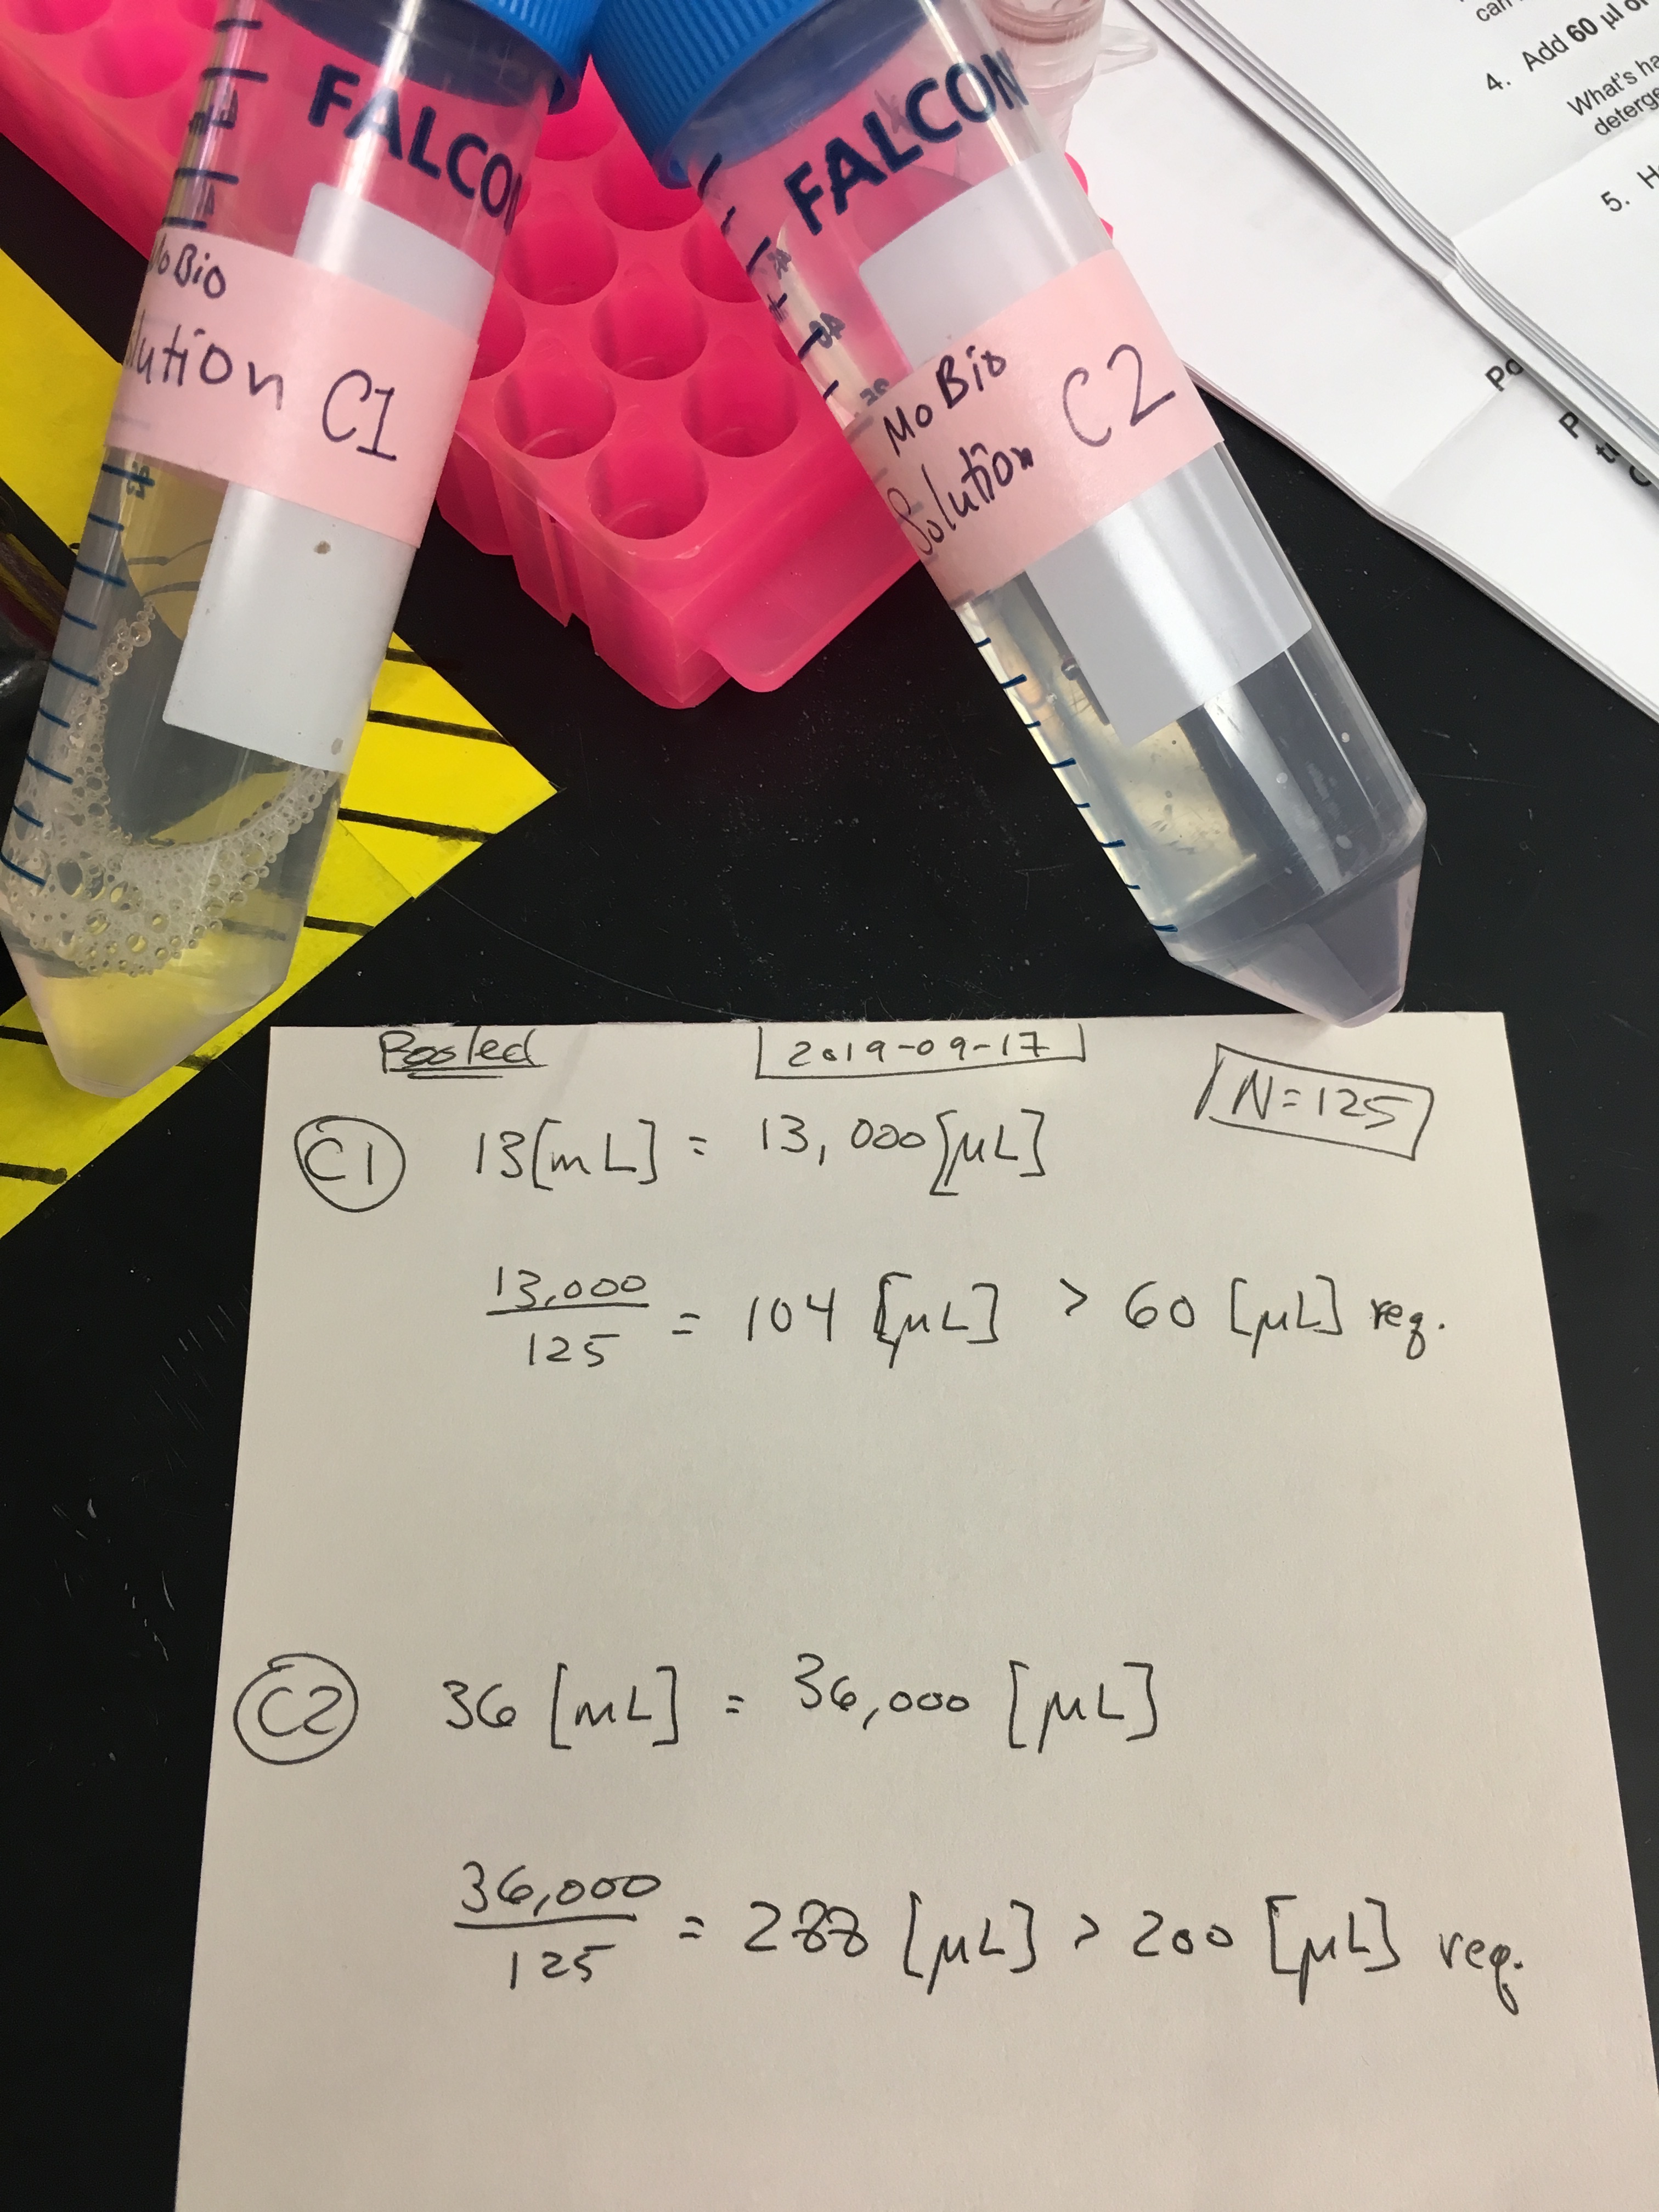 FALCON
MoBio
Solution C1
FALCON
MoBio
Solution C2
4. Add 60 µl
What's
5.
Pooled
2019-09-17
N=125
C1 13[mL] = 13,000[µL]
13,000
125
= 104 [µL] > 60 [µL] req.
C2 36 [mL] = 36,000 [µL]
36,000
125
= 288 [µL] > 200 [µL] req.